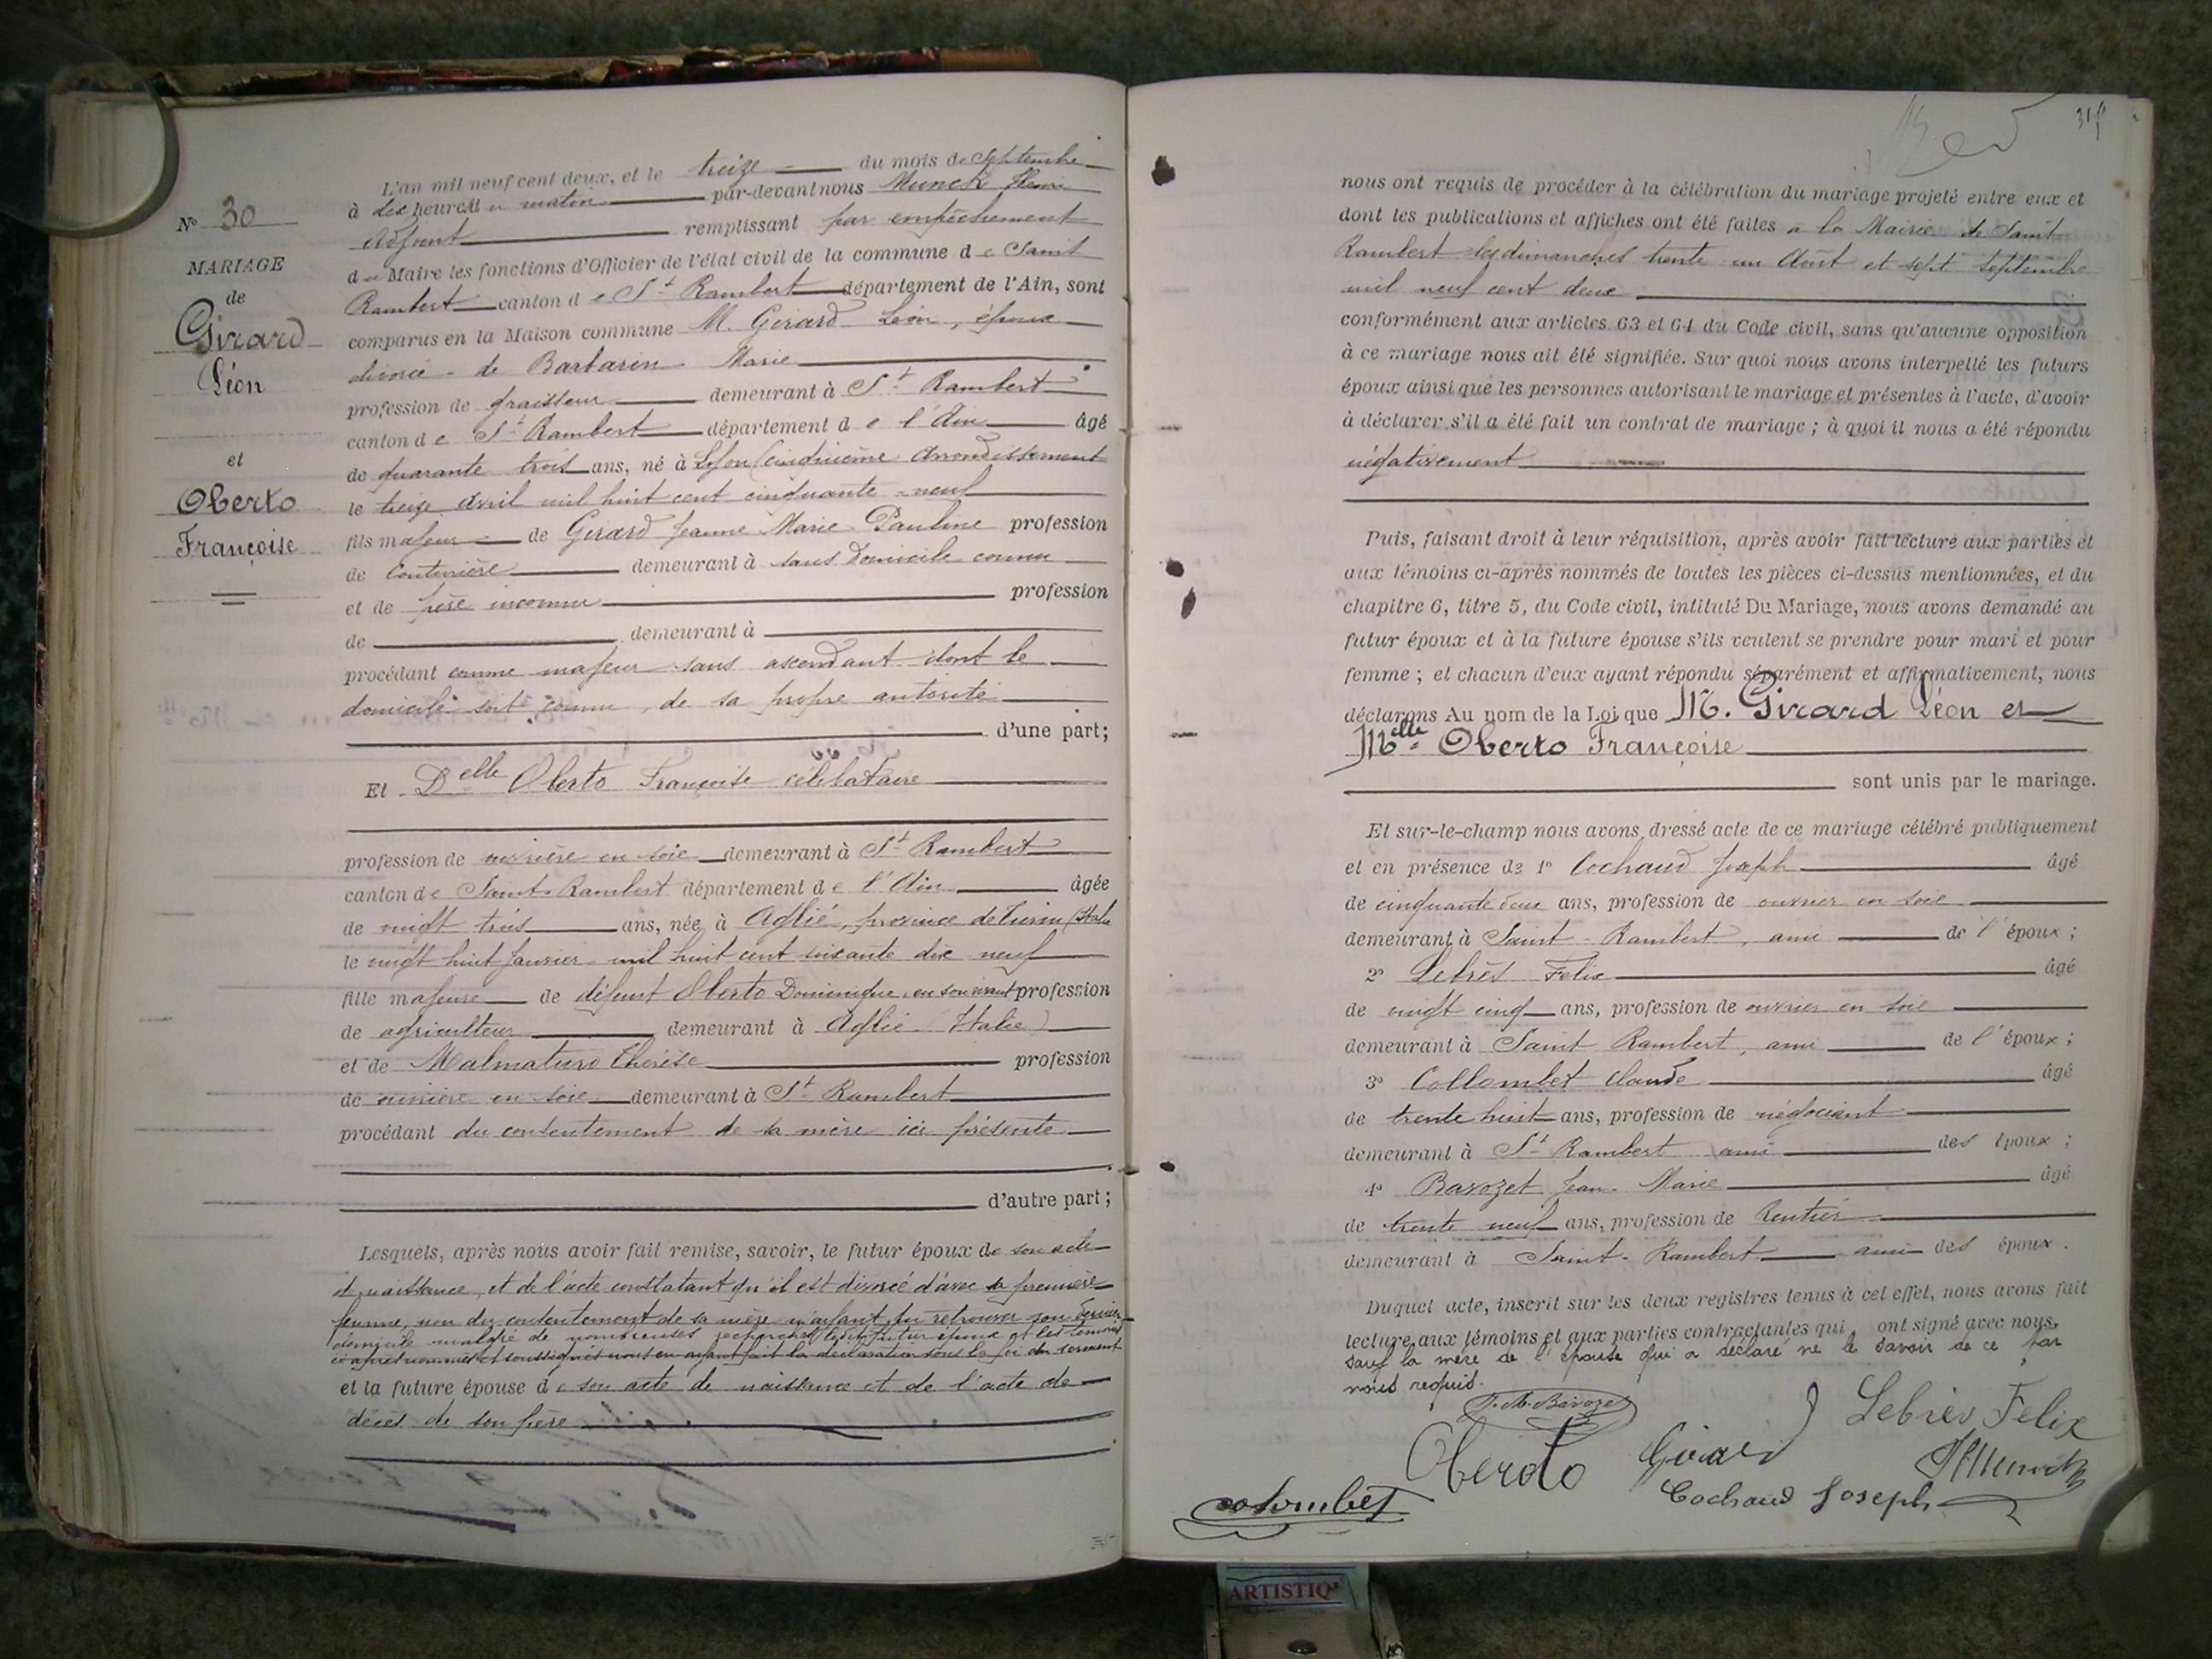 N° 30
MARIAGE
de
Girard
Léon
et
Oberto
Françoise
L'an mil neuf cent deux, et le treize du mois de Septembre
à dix heures du matin par-devant nous Munck Henri
Adjoint remplissant par empêchement
du Maire les fonctions d'Officier de l'état civil de la commune de Saint
Rambert canton de St Rambert département de l'Ain, sont
comparus en la Maison commune M. Girard Léon, époux
divorcé de Barbarin Marie
profession de graisseur demeurant à St Rambert
canton de St Rambert département de l'Ain âgé
de quarante trois ans, né à Lyon (cinquième Arrondissement
le treize Avril mil huit cent cinquante-neuf
fils majeur de Girard Jeanne Marie Pauline profession
de Couturière demeurant à sans domicile connu
et de père inconnu profession
de demeurant à
procédant comme majeur sans ascendant dont le
domicile soit connu, de sa propre autorité
d'une part;
Et Delle Oberto Françoise célibataire
profession de ouvrière en soie demeurant à St Rambert
canton de Saint-Rambert département de l'Ain âgée
de vingt trois ans, née à Aglié, province de Turin (Italie
le vingt huit Janvier mil huit cent soixante dix neuf
fille majeure de défunt Oberto Dominique, en son vivant profession
de agriculteur demeurant à Aglié (Italie)
et de Malmaturo Thérèse profession
de ouvrière en soie demeurant à St Rambert
procédant du consentement de sa mère ici présente
d'autre part;
Lesquels, après nous avoir fait remise, savoir, le futur époux de son acte
de naissance, et de l'acte constatant qu'il est divorcé d'avec sa première
femme, non du consentement de sa mère n'ayant pu retrouver son dernier
domicile malgré de nombreuses recherches, ledit futur époux et les témoins
ci-après nommés et soussignés nous en ayant fait la déclaration sous la foi du serment
et la future épouse de son acte de naissance et de l'acte de
décès de son père
nous ont requis de procéder à la célébration du mariage projeté entre eux et
dont les publications et affiches ont été faites à la Mairie de Saint
Rambert les dimanches trente un Août et sept Septembre
mil neuf cent deux
conformément aux articles 63 et 64 du Code civil, sans qu'aucune opposition
à ce mariage nous ait été signifiée. Sur quoi nous avons interpellé les futurs
époux ainsi que les personnes autorisant le mariage et présentes à l'acte, d'avoir
à déclarer s'il a été fait un contrat de mariage; à quoi il nous a été répondu
négativement
Puis, faisant droit à leur réquisition, après avoir fait lecture aux parties et
aux témoins ci-après nommés de toutes les pièces ci-dessus mentionnées, et du
chapitre 6, titre 5, du Code civil, intitulé Du Mariage, nous avons demandé au
futur époux et à la future épouse s'ils veulent se prendre pour mari et pour
femme; et chacun d'eux ayant répondu séparément et affirmativement, nous
déclarons Au nom de la Loi que M. Girard Léon et
Melle Oberto Françoise
sont unis par le mariage.
Et sur-le-champ nous avons dressé acte de ce mariage célébré publiquement
et en présence de 1° Cochaud Joseph âgé
de cinquante deux ans, profession de ouvrier en soie
demeurant à Saint-Rambert, ami de l'époux;
2° Lebrès Felix âgé
de vingt cinq ans, profession de ouvrier en soie
demeurant à Saint Rambert, ami de l'époux;
3° Collombet Claude âgé
de trente huit ans, profession de négociant
demeurant à St Rambert ami des époux;
4° Bavozet Jean-Marie âgé
de trente neuf ans, profession de Rentier
demeurant à Saint-Rambert ami des époux.
Duquel acte, inscrit sur les deux registres tenus à cet effet, nous avons fait
lecture aux témoins et aux parties contractantes qui ont signé avec nous,
sauf la mère de l'épouse qui a déclaré ne le savoir de ce par
nous requis.
J. M. Bavozet
Lebrès Felix
Oberto Girard
HMunck
Colombet
Cochaud Joseph
ARTISTIQ